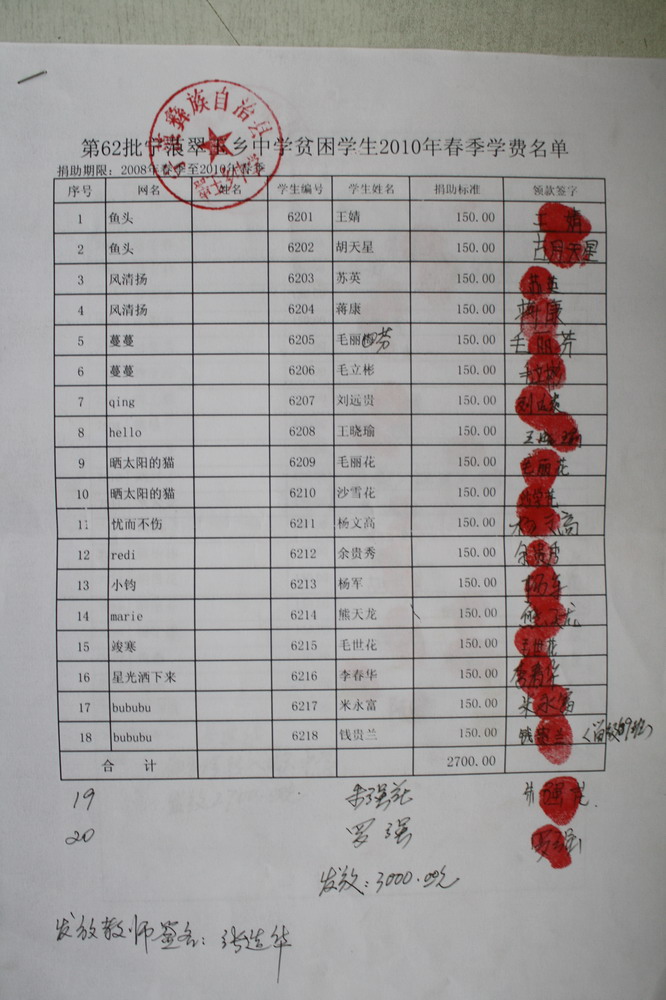 彝族自治县
第62批宁蒗翠玉乡中学贫困学生2010年春季学费名单
捐助期限：2008年春季至2010年春季
序号 网名 姓名 学生编号 学生姓名 捐助标准 领款签字
1 鱼头 6201 王婧 150.00 王婧
2 鱼头 6202 胡天星 150.00 胡天星
3 风清扬 6203 苏英 150.00 苏英
4 风清扬 6204 蒋康 150.00 蒋康
5 蔓蔓 6205 毛丽芬 150.00 毛丽芳
6 蔓蔓 6206 毛立彬 150.00 毛立彬
7 qing 6207 刘远贵 150.00 刘远贵
8 hello 6208 王晓瑜 150.00 王晓瑜
9 晒太阳的猫 6209 毛丽花 150.00 毛丽花
10 晒太阳的猫 6210 沙雪花 150.00 沙雪花
11 忧而不伤 6211 杨文高 150.00 杨文高
12 redi 6212 余贵秀 150.00 余贵秀
13 小钧 6213 杨军 150.00 杨军
14 marie 6214 熊天龙 150.00 熊天龙
15 竣寒 6215 毛世花 150.00 毛世花
16 星光洒下来 6216 李春华 150.00 李春华
17 bububu 6217 米永富 150.00 米永富
18 bububu 6218 钱贵兰 150.00 钱贵兰
合计 2700.00
19 强花 强花
20 罗强 罗强
发放：3000.00元
发放教师签名：张选华